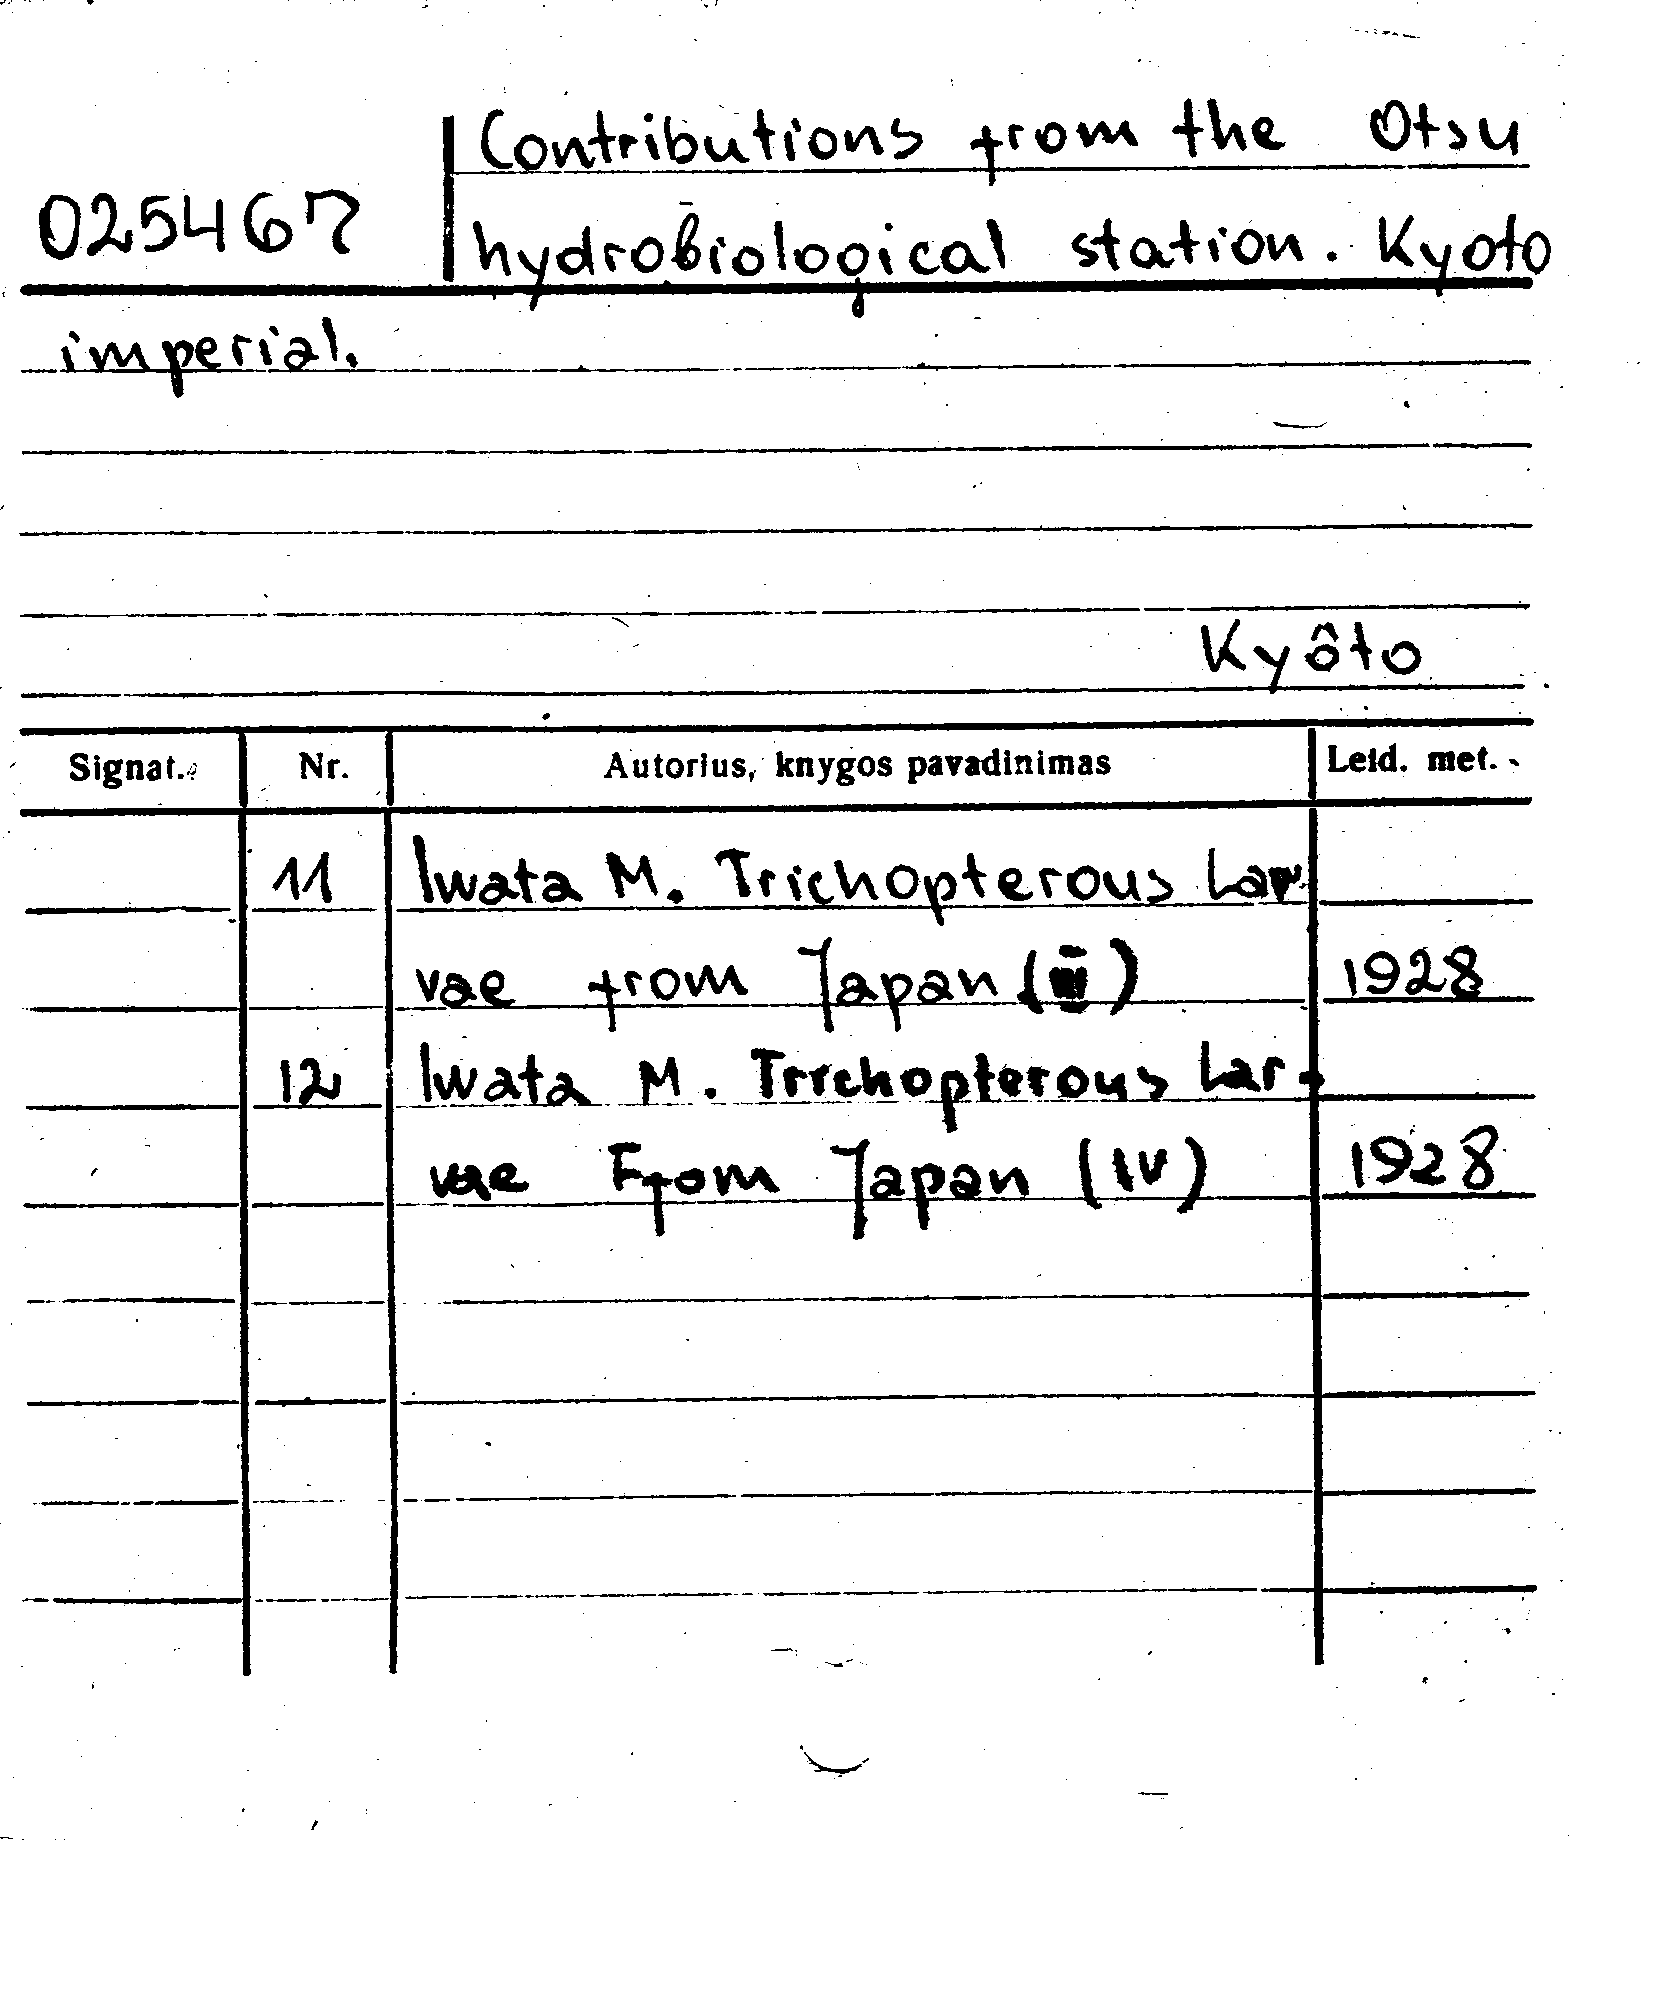 Contributions from the Otsu
025467
hydrobiological station. Kyoto
imperial.
Kyôto
Signat. Nr. Autorius, knygos pavadinimas Leid. met.
11 Iwata M. Trichopterous Lar
vae from Japan (III) 1928
12 Iwata M. Trichopterous Lar-
vae From Japan (IV) 1928